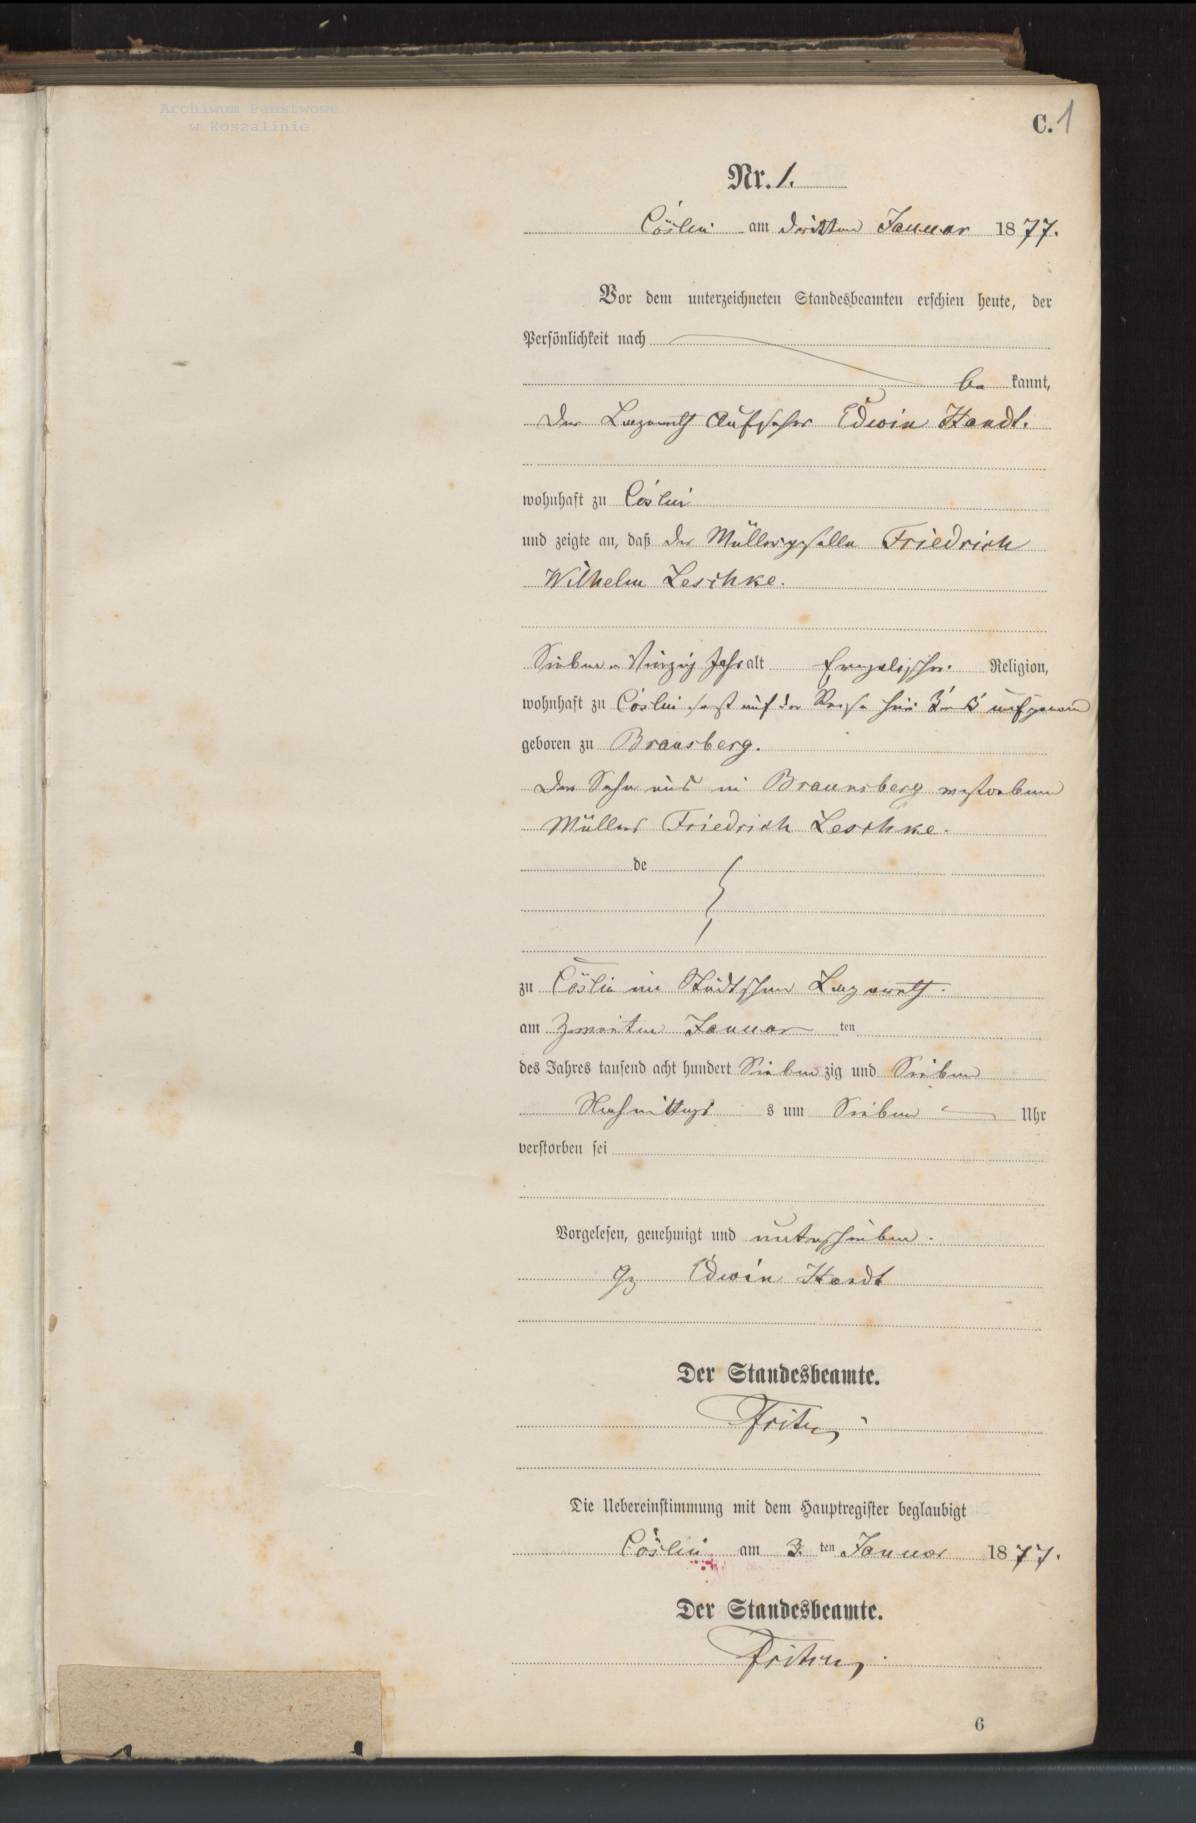 Archiwum Państwowe
w Koszalinie
C. 1
Nr. 1.
Cöslin am dritten Januar 1877.
Vor dem unterzeichneten Standesbeamten erschien heute, der
Persönlichkeit nach
be kannt,
der Lazareth Aufseher Edwin Hardt.
wohnhaft zu Cöslin
und zeigte an, daß der Müllergeselle Friedrich
Wilhelm Leschke.
Sieben u Vierzig Jahr alt Evangelischer Religion,
wohnhaft zu Cöslin auf der Reise
geboren zu Braunsberg.
Der Sohn des in Braunsberg verstorbenen
Müllers Friedrich Leschke.
de
zu Cöslin im Städtschen Lazareth.
am Zweiten Januar ten
des Jahres tausend acht hundert Sieben zig und Sieben
Nachmittags s um Sieben Uhr
verstorben sei
Vorgelesen, genehmigt und unterschrieben.
Gz Edwin Hardt
Der Standesbeamte.
Die Uebereinstimmung mit dem Hauptregister beglaubigt
Cöslin am 3. ten Januar 1877.
Der Standesbeamte.
6